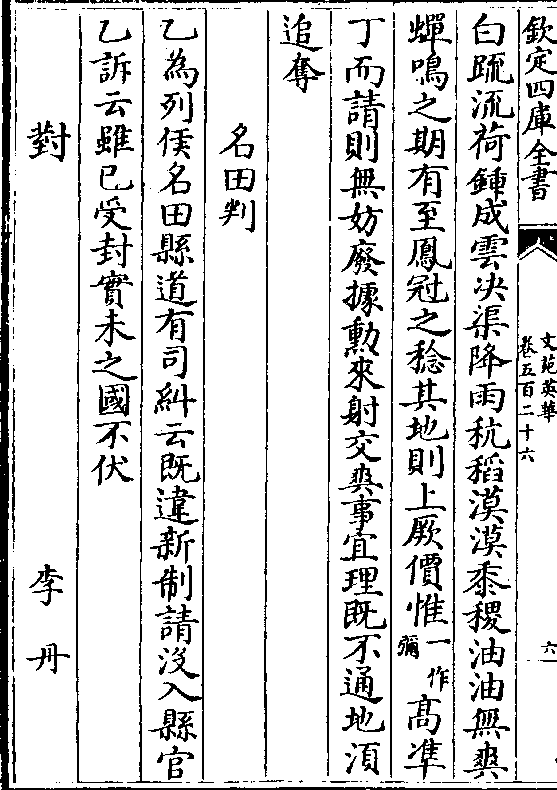 欽定四庫全書
文苑英華
卷五百二十六
六
白䟽流荷鍤成雲决渠降雨秔稻漠漠黍稷油油無爽
蟬鳴之期有至鳳冠之稔其地則上厥價惟一作彌高凖
丁而請則無妨廢據勲来射交爽事宜理既不通地湏
追奪
名田判
乙為列侯名田縣道有司糾云既違新制請没入縣官
乙訴云雖已受封實未之國不伏
對
李丹